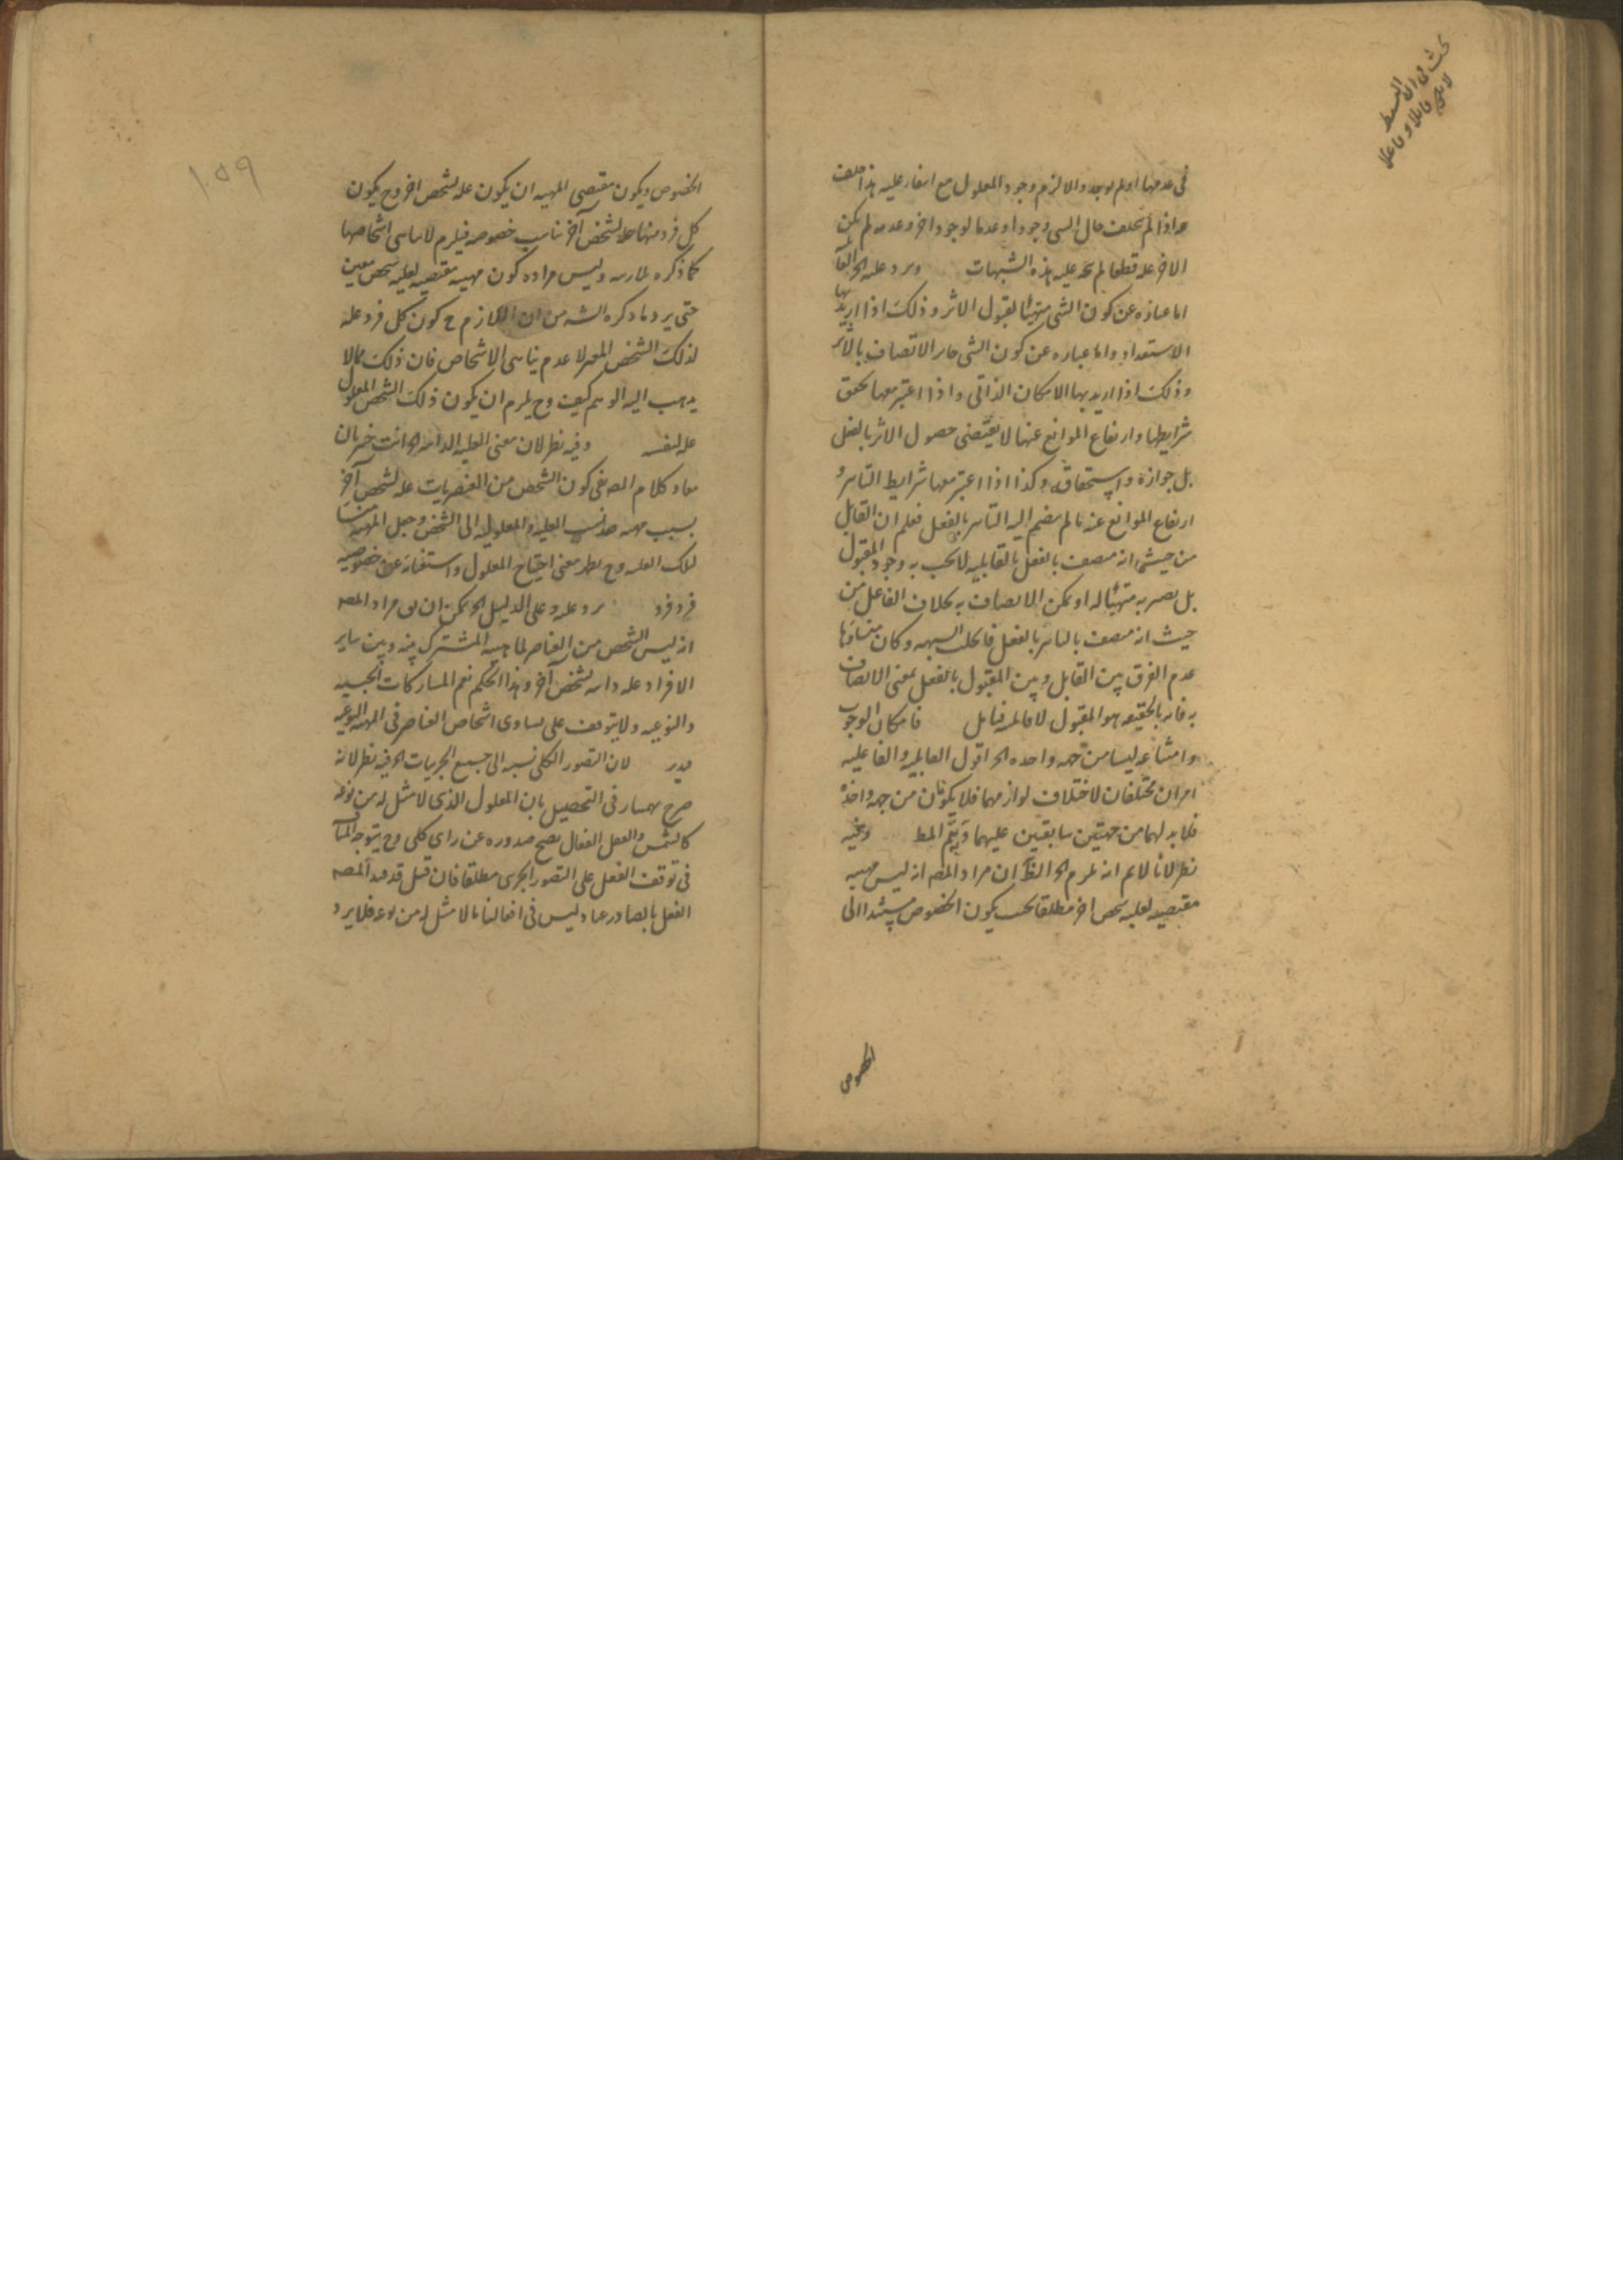 في عدمها او لم يوجد والا لزم وجود المعلول مع انتفاء عليه هذا خلف
واذا لم يختلف حال الشى وجودا وعدما لوجود اخر وعدمه لم يكن
الاخر علة قطعا لم يتجه عليه هذه الشبهات ويرد عليه الخ القا
اما عبارة عن كون الشى متهيئا لقبول الاثر وذلك اذا اريد بها
الاستعداد واما عبارة عن كون الشى جايز الاتصاف بالاثر
وذلك اذا اريد بها الامكان الذاتى واذا اعتبر معها تحقق
شرايطها وارتفاع الموانع عنها لا يقتضى حصول الاثر بالفعل
بل جوازه واستحقاقه وكذا اذا اعتبر معها شرايط التاثير و
ارتفاع الموانع عنه ما لم ينضم اليه التاثير بالفعل فعلم ان القابل
من حيث انه متصف بالفعل بالقابلية لا يجب به وجود المقبول
بل يصير به متهيئا له او يمكن الاتصاف به بخلاف الفاعل من
حيث انه متصف بالتاثير بالفعل فانحلت الشبهه وكان منشاؤها
عدم الفرق بين القابل وبين المقبول بالفعل بمعنى الاتصاف
به فانه بالحقيقه هو المقبول لا قابله فتامل فامكان الوجوب
وامتناعه ليسا من جهه واحده الخ اقول القابلية والفاعليه
امران مختلفان لاختلاف لوازمهما فلا يكونان من جهه واحدة
فلا بد لهما من جهتين سابقتين عليهما ويتم المط وفيه
نظر لانا لا نم انه يلزم الخ الظ ان مراد المصه انه ليس مهيه
مقتضيه لعليه شخص اخر مطلقا بحسب يكون الخصوص مستندا الى
الخصوص
الخصوص ويكون مقتضى المهيه ان يكون علة لشخص اخر وح يكون
كل فرد منها علة لشخص آخر يناسب خصوصه فيلزم لا تناهى اشخاصها
كما ذكره الشارح وليس مراده كون مهيه مقتضيه لعليه شخص معين
حتى يرد ما ذكره الشه من ان اللازم ح كون كل فرد علة
لذلك الشخص المعين لا عدم تناهى الاشخاص فان ذلك مما لا
يذهب اليه الوهم كيف وح يلزم ان يكون ذلك الشخص المعلول
علة لنفسه وفيه نظر لان معنى العليه الذاتيه الخ انت خبير بان
مفاد كلام المصه نفى كون الشخص من العنصريات علة لشخص آخر
العلية والمعلولية الى الشخص وجعل المهية منشا
تلك العليه وح يظهر معنى احتياج المعلول واستغنائه عن خصوصيه
فرد فرد يرد عليه وعلى الدليل الخ يمكن ان يق مراد المصه
انه ليس الشخص من العناصر لماهيته المشتركه بينه وبين ساير
الافراد علة ذاتيه لشخص آخر وهذا الحكم نعم المشاركات الجنسيه
والنوعيه ولا يتوقف على تساوى اشخاص العناصر فى المهيه النوعيه
فتدبر لان التصور الكلى نسبه الى جميع الجزييات الخ فيه نظر لانه
صرح بهمنيار فى التحصيل بان المعلول الذى لا مثل له من نوعه
كالشمس والعقل الفعال يصح صدوره عن راى كلى وح يتوجه المنا
فى توقف الفعل على التصور الجزئى مطلقا فان قيل قد قيد المصه
الفعل بالصادر عنا وليس فى افعالنا ما لا مثل له من نوعه فلا يرد
١٥٩